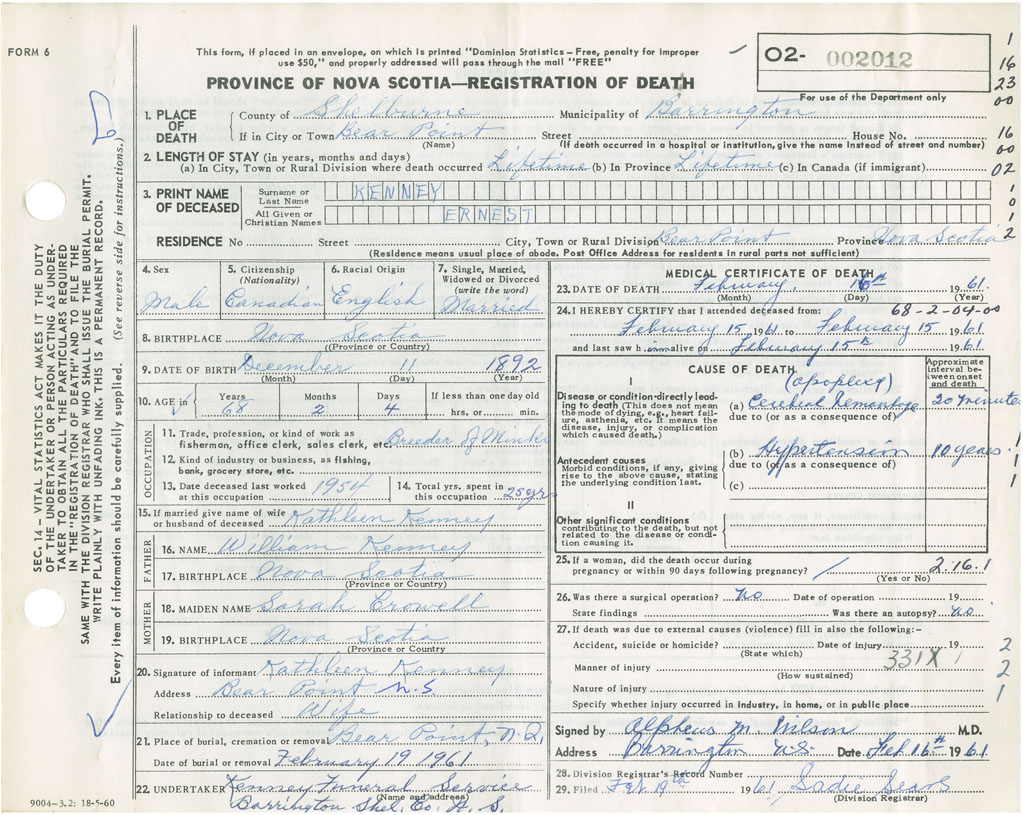 FORM 6
This form, if placed in an envelope, on which is printed "Dominion Statistics – Free, penalty for improper
use $50," and properly addressed will pass through the mail "FREE"
PROVINCE OF NOVA SCOTIA—REGISTRATION OF DEATH
02- 002012
For use of the Department only
1
16
23
00
16
00
02
1
0
1
2
1. PLACE OF DEATH
County of Shelburne Municipality of Barrington
If in City or Town Bear Point Street House No.
(Name) (If death occurred in a hospital or institution, give the name instead of street and number)
2. LENGTH OF STAY (in years, months and days)
(a) In City, Town or Rural Division where death occurred Lifetime (b) In Province Lifetime (c) In Canada (if immigrant)
3. PRINT NAME OF DECEASED
Surname or Last Name KENNEY
All Given or Christian Names ERNEST
RESIDENCE No Street City, Town or Rural Division Bear Point Province Nova Scotia
(Residence means usual place of abode. Post Office Address for residents in rural parts not sufficient)
4. Sex
Male
5. Citizenship
(Nationality)
Canadian
6. Racial Origin
English
7. Single, Married,
Widowed or Divorced
(write the word)
Married
8. BIRTHPLACE Nova Scotia
(Province or Country)
9. DATE OF BIRTH December 11 1892
(Month) (Day) (Year)
10. AGE in
Years 68
Months 2
Days 4
If less than one day old
hrs. or min.
OCCUPATION
11. Trade, profession, or kind of work as
fisherman, office clerk, sales clerk, etc. Breeder of Minks
12. Kind of industry or business, as fishing,
bank, grocery store, etc.
13. Date deceased last worked
at this occupation 1954
14. Total yrs. spent in
this occupation 25 yrs
15. If married give name of wife
or husband of deceased Kathleen Kenney
FATHER
16. NAME William Kenney
17. BIRTHPLACE Nova Scotia
(Province or Country)
MOTHER
18. MAIDEN NAME Sarah Crowell
19. BIRTHPLACE Nova Scotia
(Province or Country
20. Signature of informant Kathleen Kenney
Address Bear Point N.S.
Relationship to deceased Wife
21. Place of burial, cremation or removal Bear Point, N.S.
Date of burial or removal February 19 1961
22. UNDERTAKER Kenney Funeral Service
(Name and address)
Barrington Shel. Co. N.S.
MEDICAL CERTIFICATE OF DEATH
23. DATE OF DEATH February 15th 1961
(Month) (Day) (Year)
24. I HEREBY CERTIFY that I attended deceased from: 68-2-04-00
February 15 1961 to February 15 1961
and last saw him alive on February 15th 1961
CAUSE OF DEATH
Approximate
interval be-
tween onset
and death
I
Disease or condition directly lead-
ing to death (This does not mean
the mode of dying, e.g., heart fail-
ure, asthenia, etc. It means the
disease, injury, or complication
which caused death.)
(apoplexy)
(a) Cerebral Hemorrhage 20 minutes
due to (or as a consequence of)
Antecedent causes
Morbid conditions, if any, giving
rise to the above cause, stating
the underlying condition last.
(b) Hypertension 10 years
due to (or as a consequence of)
(c)
1
1
1
II
Other significant conditions
contributing to the death, but not
related to the disease or condi-
tion causing it.
25. If a woman, did the death occur during
pregnancy or within 90 days following pregnancy? 2.16.1
(Yes or No)
26. Was there a surgical operation? No Date of operation 19
State findings Was there an autopsy? No
27. If death was due to external causes (violence) fill in also the following:–
Accident, suicide or homicide? Date of injury 19
(State which) 331X
Manner of injury
(How sustained)
Nature of injury
Specify whether injury occurred in industry, in home, or in public place
2
2
1
Signed by Alpheus M. Wilson M.D.
Address Barrington N.S. Date Feb 16th 1961
28. Division Registrar's Record Number
29. Filed Feb. 19th 1961 Sadie Sears
(Division Registrar)
SEC. 14 – VITAL STATISTICS ACT MAKES IT THE DUTY
OF THE UNDERTAKER OR PERSON ACTING AS UNDER-
TAKER TO OBTAIN ALL THE PARTICULARS REQUIRED
IN THE "REGISTRATION OF DEATH" AND TO FILE THE
SAME WITH THE DIVISION REGISTRAR WHO SHALL ISSUE THE BURIAL PERMIT.
WRITE PLAINLY WITH UNFADING INK. THIS IS A PERMANENT RECORD.
Every item of information should be carefully supplied. (See reverse side for instructions.)
9004-3.2: 18-5-60